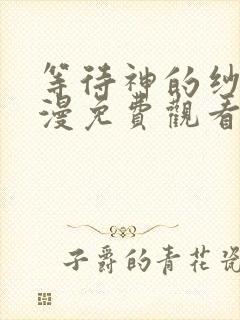 等待神的纱
漫免費觀看
子爵的青花瓷